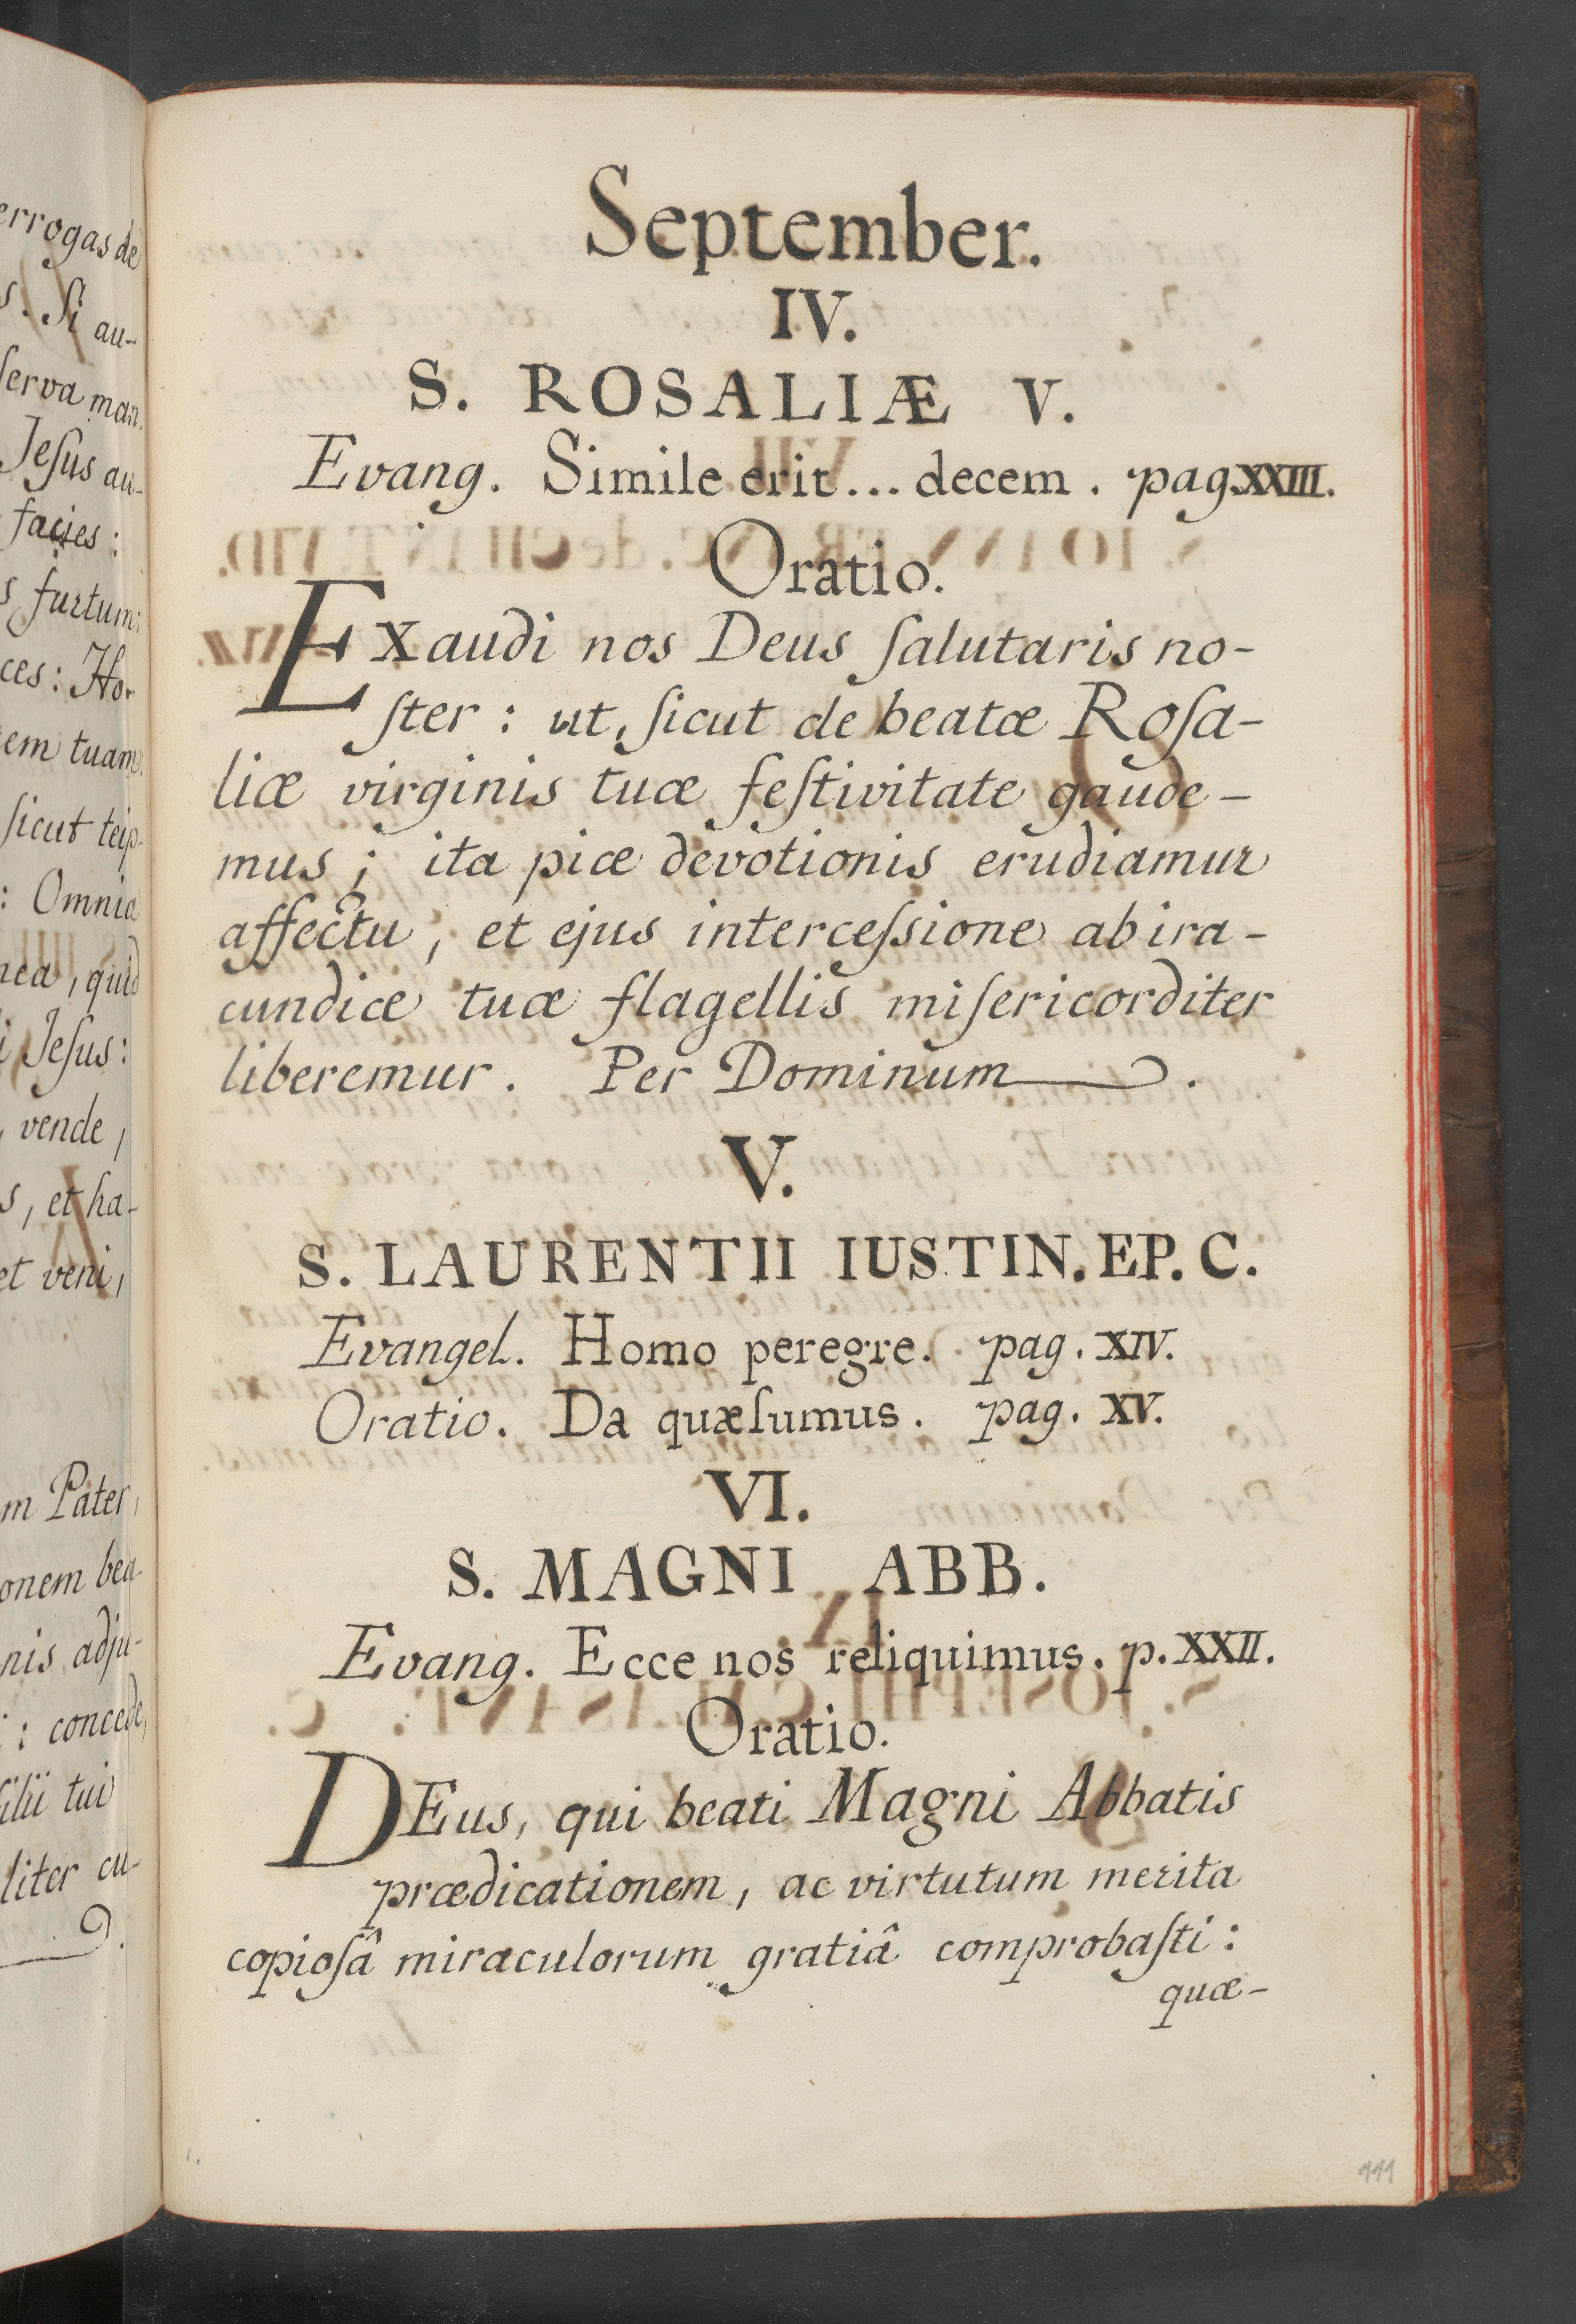 errogas de
s. Si au-
ſerva man-
Jeſus au-
facies:
s furtum:
ces: Ho-
em tuam.
ſicut teip-
: Omnia
mea, quid
i Jeſus:
vende,
s, et ha-
et veni,
m Pater,
onem bea-
nis adju-
: concede,
filii tui
liter cu-
September.
IV.
S. ROSALIÆ V.
Evang. Simile erit... decem. pag. XXIII.
Oratio.
EXaudi nos Deus ſalutaris no-
ſter: ut, ſicut de beatæ Roſa-
liæ virginis tuæ feſtivitate gaude-
mus; ita piæ devotionis erudiamur
affectu, et ejus interceſsione ab ira-
cundiæ tuæ flagellis miſericorditer
liberemur. Per Dominum.
V.
S. LAURENTII IUSTIN. EP. C.
Evangel. Homo peregre. pag. XIV.
Oratio. Da quæſumus. pag. XV.
VI.
S. MAGNI ABB.
Evang. Ecce nos reliquimus. p. XXII.
Oratio.
DEus, qui beati Magni Abbatis
prædicationem, ac virtutum merita
copioſâ miraculorum gratiâ comprobaſti:
quæ-
111